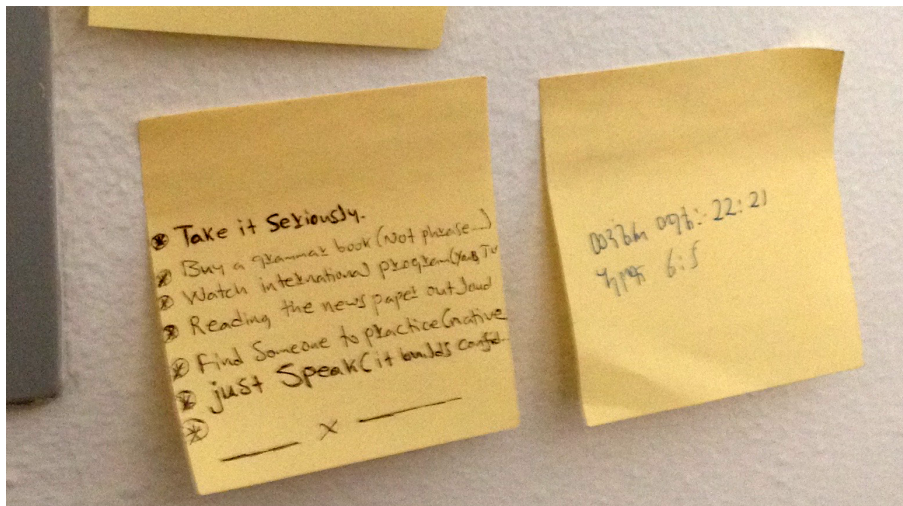 Take it Seriously.
Buy a grammar book (Not phrase...)
Watch international program (
Reading the news paper out loud
Find Someone to practice (native
just Speak (it builds confid-
x
22:21
6:5